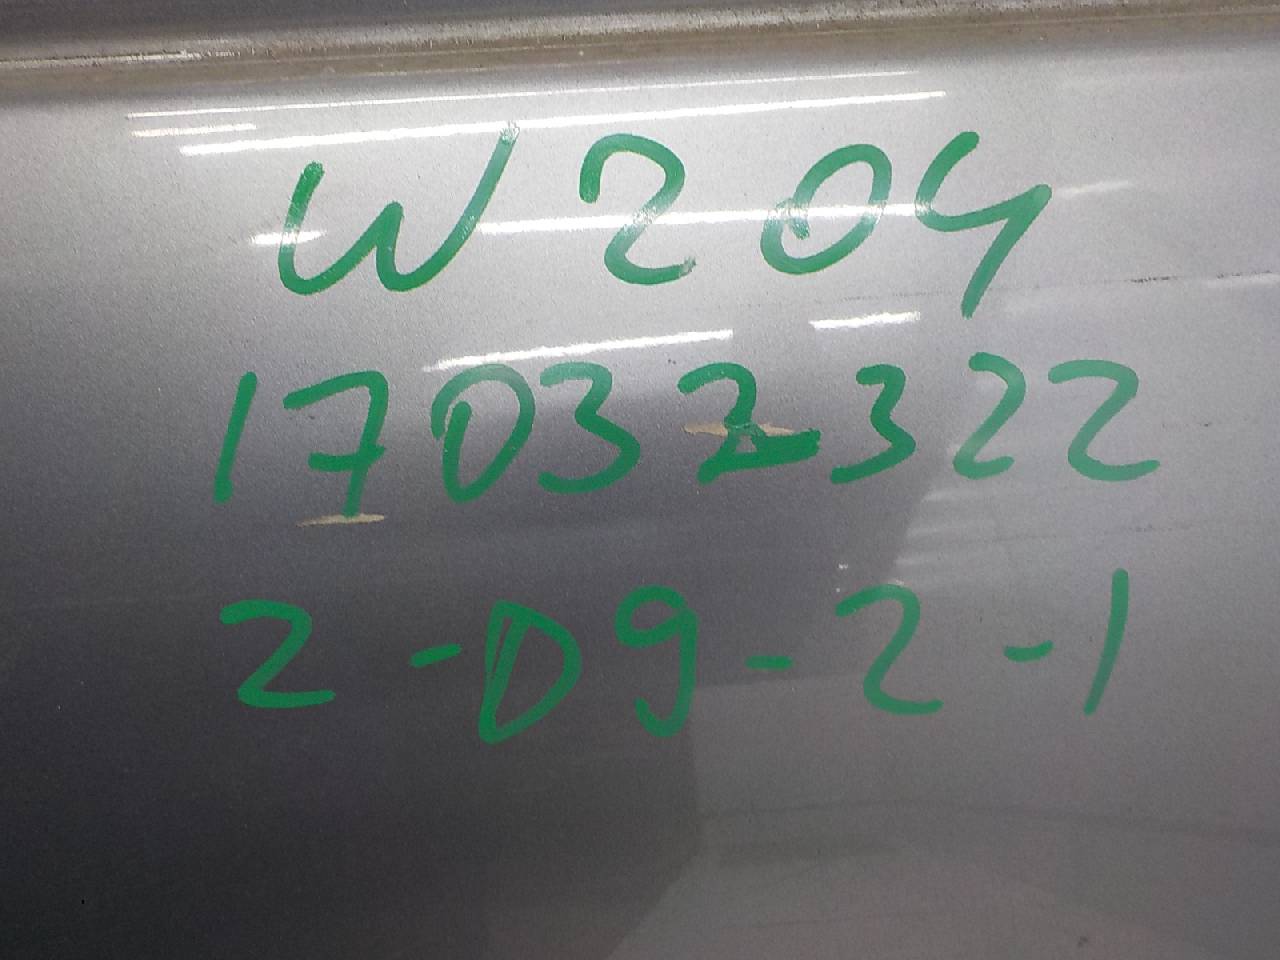 W204
170322322
2-09-2-1